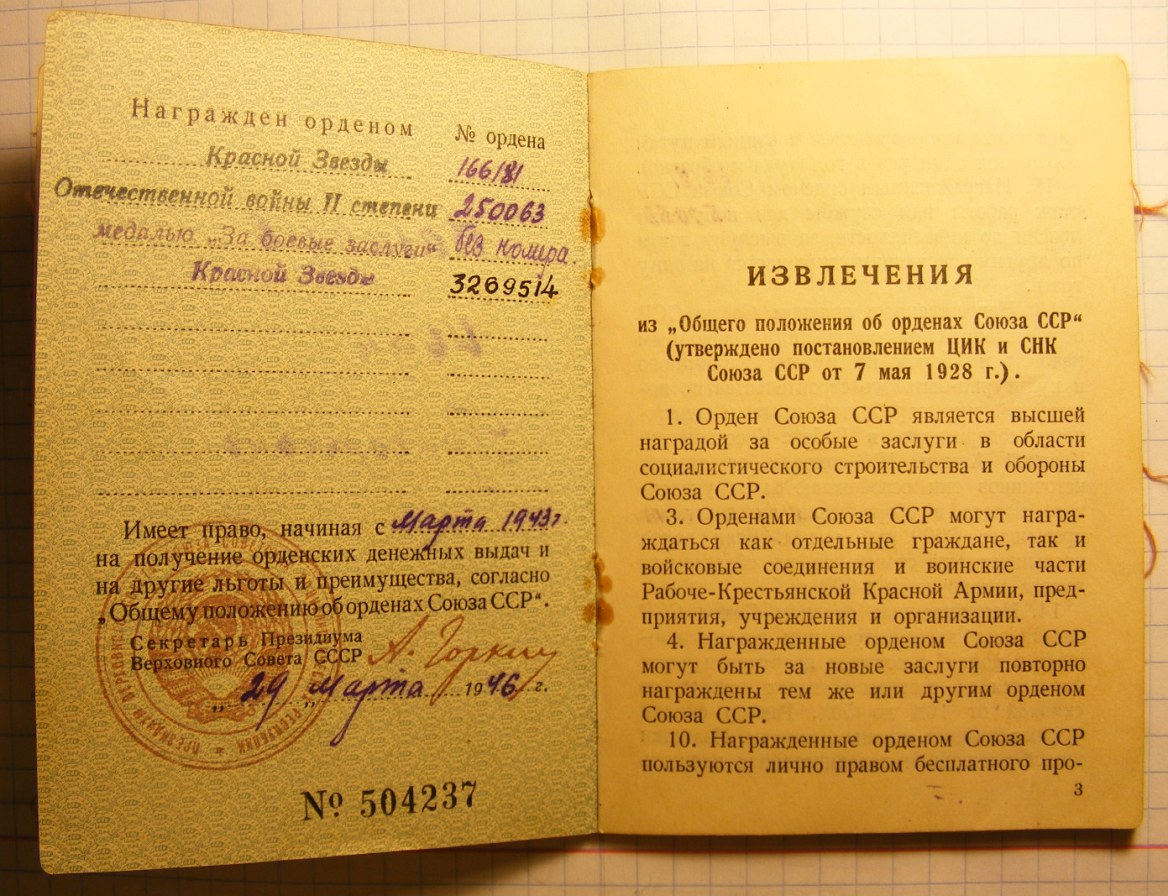 Награжден орденом № ордена
Красной Звезды 166181
Отечественной войны II степени 250063
медалью „За боевые заслуги“ без номера.
Красной Звезды 3269514
Имеет право, начиная с марта 1943 г.
на получение орденских денежных выдач и
на другие льготы и преимущества, согласно
„Общему положению об орденах Союза ССР“.
Секретарь Президиума
Верховного Совета СССР А. Горкин
„29 „ Марта 1946 г.
№ 504237
ИЗВЛЕЧЕНИЯ
из „Общего положения об орденах Союза ССР“
(утверждено постановлением ЦИК и СНК
Союза ССР от 7 мая 1928 г.).
1. Орден Союза ССР является высшей
наградой за особые заслуги в области
социалистического строительства и обороны
Союза ССР.
3. Орденами Союза ССР могут награ-
ждаться как отдельные граждане, так и
войсковые соединения и воинские части
Рабоче-Крестьянской Красной Армии, пред-
приятия, учреждения и организации.
4. Награжденные орденом Союза ССР
могут быть за новые заслуги повторно
награждены тем же или другим орденом
Союза ССР.
10. Награжденные орденом Союза ССР
пользуются лично правом бесплатного про-
3